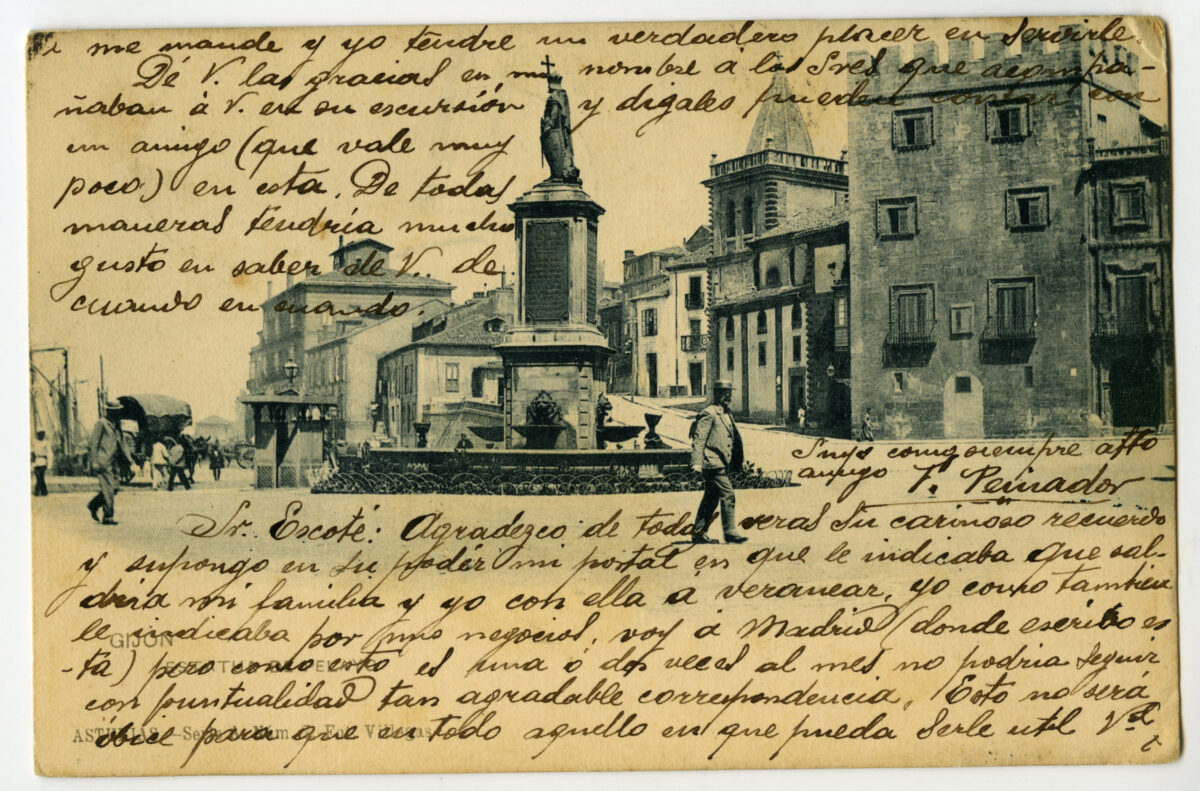 me mande y yo tendre un verdadero placer en servirle.
Dé V. las gracias en mi nombre a los Sres que acompa-
ñaban á V. en su excursión y digales pueden contar con
un amigo (que vale muy
poco) en esta. De todas
maneras tendría mucho
gusto en saber de V. de
cuando en cuando.
Suyo como siempre affto
amigo F. Peinador
Sr. Escoté: Agradezco de todas veras su cariñoso recuerdo
y supongo en su poder mi postal en que le indicaba que sal-
dría mi familia y yo con ella á veranear, yo como tambien
le indicaba por mis negocios, voy á Madrid (donde escribo es
-ta) pero como esto es una ó dos veces al mes no podria seguir
con puntualidad tan agradable correspondencia. Esto no será
óbice para que en todo aquello en que pueda serle util Vd
GIJON
ASTURIAS.—Serie